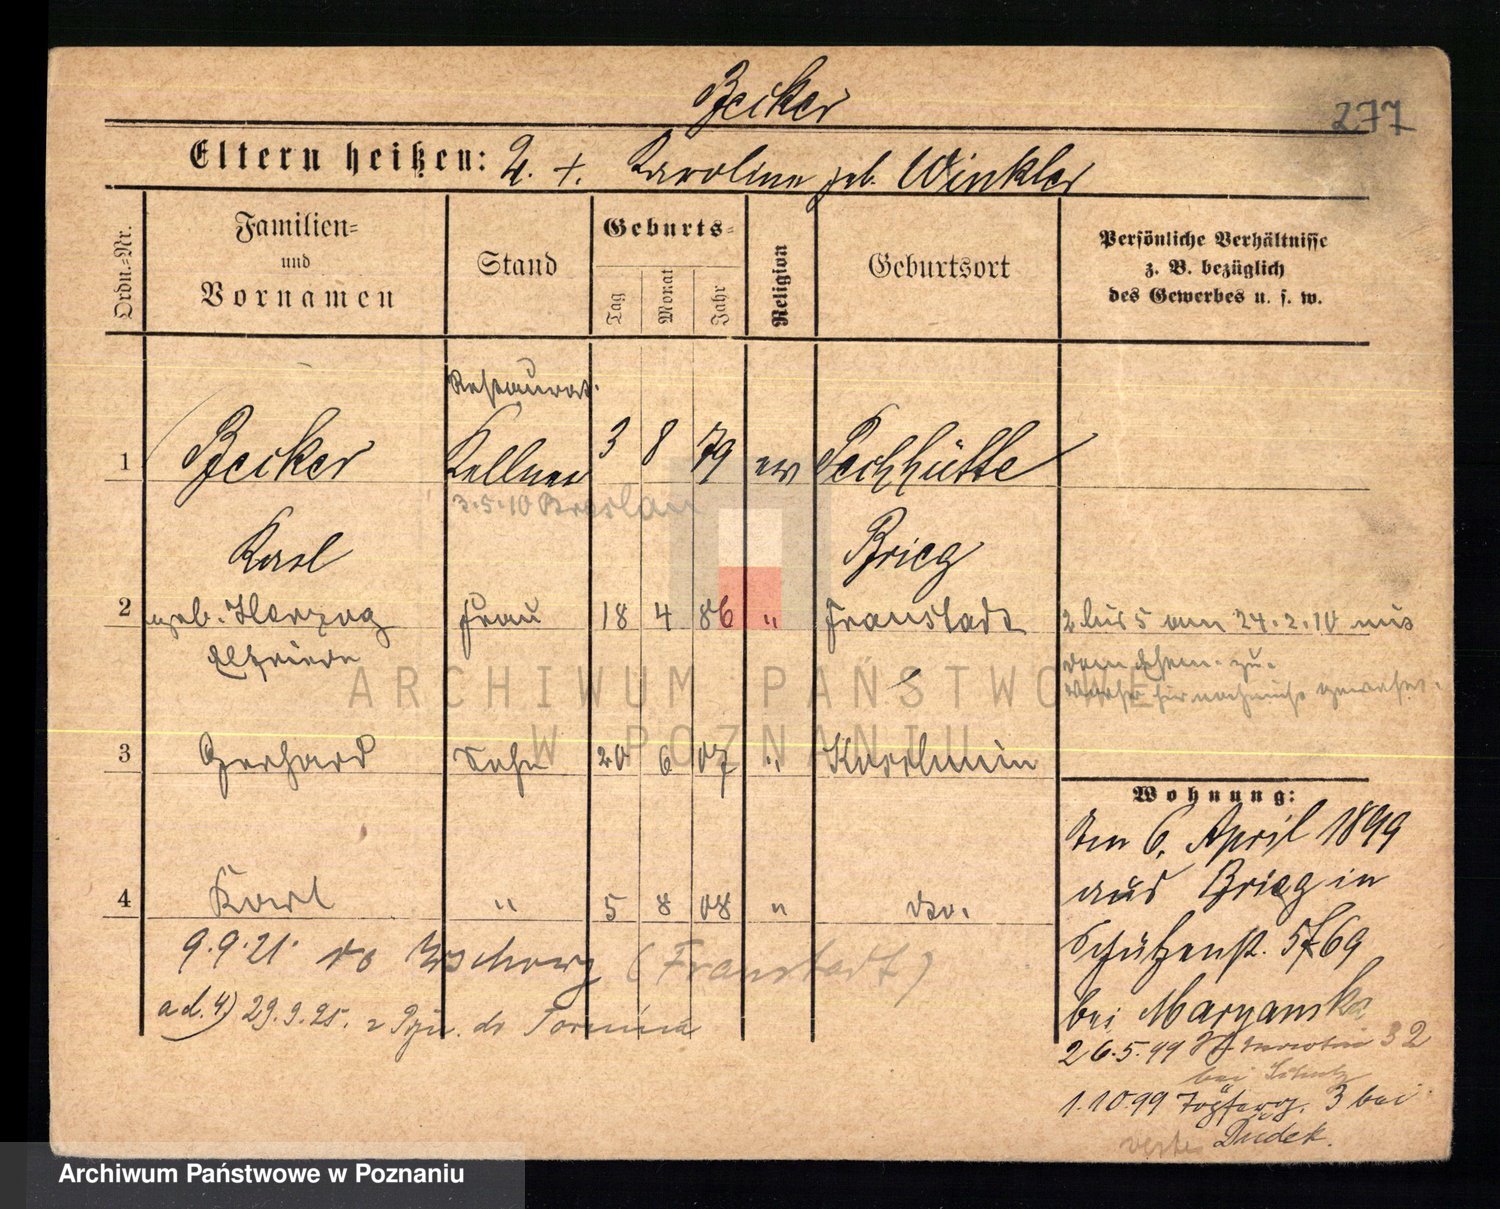 Becker
277
Eltern heißen: Karoline geb. Winkler
Ordn.-Nr.
Familien-
und
Vornamen
Stand
Geburts-
Tag
Monat
Jahr
Religion
Geburtsort
Persönliche Verhältnisse
z. B. bezüglich
des Gewerbes u. s. w.
Restaurat.
1 Becker Kellner 3 8 79 ev Pechhütte
3.5.10 Breslau
Karl Brieg
2 geb. Herzog Frau 18 4 86 " Fraustadt 2 bis 5 am 24.2.10 aus
Elfriede
3 Gerhard Sohn 20 6 07 "
4 Karl " 5 8 08 " do.
9.9.21. do (Fraustadt)
ad. 4) 29.9.25. do
Wohnung:
Am 6. April 1899
aus Brieg in
Schützenst.
bei Maryanski
26.5.99 32
bei Schulz
1.10.99 3 bei
Dudek.
ARCHIWUM PAŃSTWOWE
W POZNANIU
Archiwum Państwowe w Poznaniu